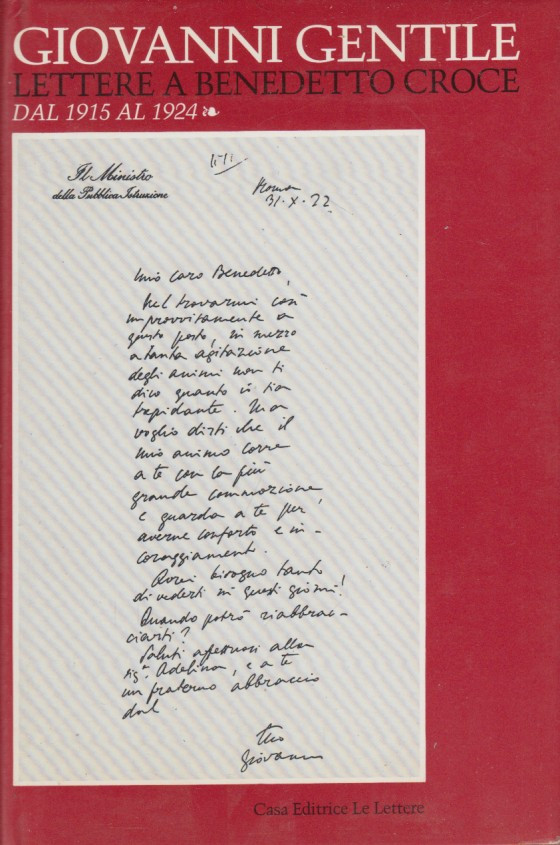 GIOVANNI GENTILE
LETTERE A BENEDETTO CROCE
DAL 1915 AL 1924
Il Ministro
della Pubblica Istruzione
Roma
31.X.22
Mio caro Benedetto,
Nel trovarmi così
improvvisamente a
questo posto, in mezzo
a tanta agitazione
degli animi non ti
dico quanto io sia
trepidante. Ma
voglio dirti che il
mio animo corre
a te con la più
grande commozione
e guarda a te per
averne conforto e in-
coraggiamento.
Avrei bisogno tanto
di vederti in questi giorni!
Quando potrò riabbrac-
ciarti?
Saluti affettuosi alla
sig.ª Adelina, e a te
un fraterno abbraccio
dal
tuo
Giovanni
Casa Editrice Le Lettere